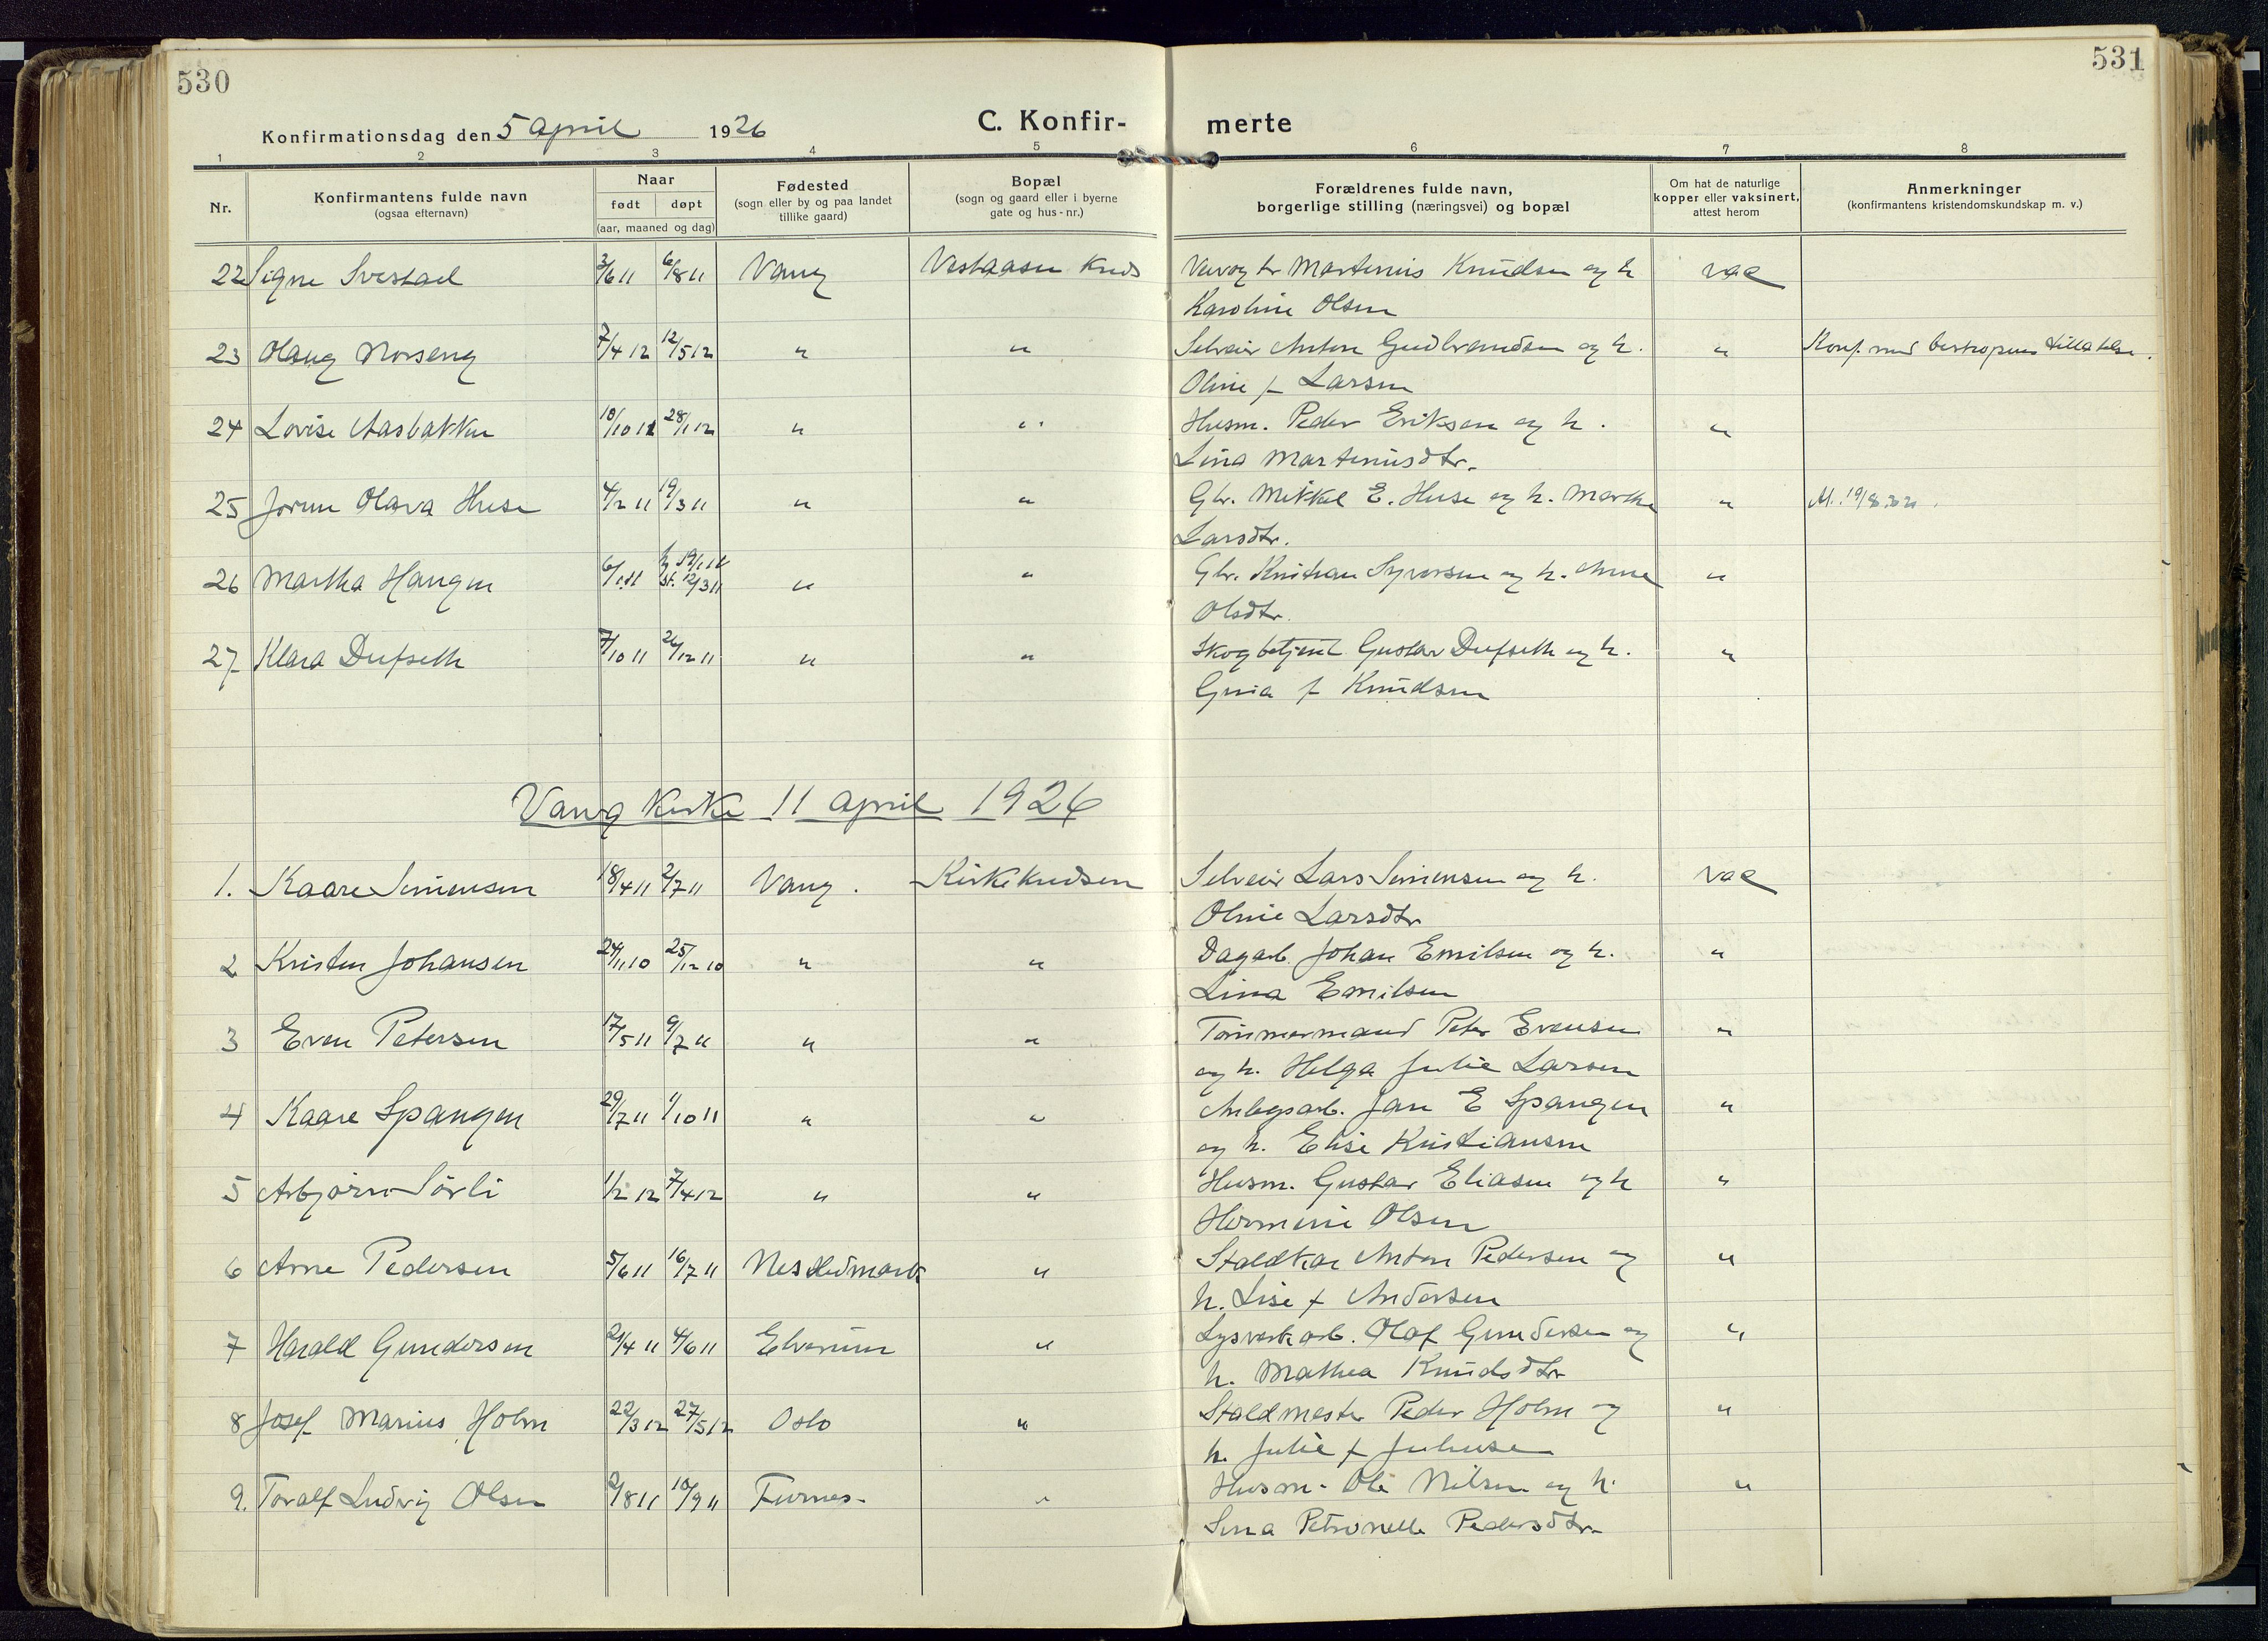 530
531
Konfirmationsdag den 5 april 1926
C. Konfir-
merte
1 2 3 4 5 6 7 8
Nr.
Konfirmantens fulde navn
(ogsaa efternavn)
Naar
født døpt
(aar, maaned og dag)
Fødested
(sogn eller by og paa landet
tillike gaard)
Bopæl
(sogn og gaard eller i byerne
gate og hus-nr.)
Forældrenes fulde navn,
borgerlige stilling (næringsvei) og bopæl
Om hat de naturlige
kopper eller vaksinert,
attest herom
Anmerkninger
(konfirmantens kristendomskundskap m. v.)
22 Signe Svestad 3/6 11 6/8 11 Vang Vestaasen Kreds Martinius Knudsen og h vac
Karoline Olsen
23 Olaug Norseng 7/4 12 12/5 12 " " Selveier Anton Gudbrandsen og h. " Konf. med biskopens tillatelse.
Oline f Larsen
24 Lovise Aasbakken 10/10 11 28/1 12 " " Husm. Peder Eriksen og h. "
Lina Martinusdtr.
25 Jorun Olava Huse 4/2 11 19/3 11 " " Gbr. Mikkel E. Huse og h. Marthe "
Larsdtr.
26 Martha Haugen 6/1 11 st. 12/3 11 " " Gbr. Kristian Syversen og h. Anne "
Olsdtr.
27 Klara Dufseth 7/10 11 26/12 11 " " Skogbetjent Gustav Dufseth og h. "
f Knudsen
Vang Kirke 11 april 1926
1. Kaare Simensen 18/4 11 2/7 11 Vang. Kirkekredsen Selveier Lars Simensen og h. vac
Oline Larsdtr
2 Kristen Johansen 24/11 10 25/12 10 " " Dagarb. Johan Emilsen og h. "
Lina Emilsen
3 Even Petersen 17/5 11 9/7 11 " " Tømmermand Peter Evensen "
og h. Helga Julie Larsen
4 Kaare Spangen 29/7 11 1/10 11 " " Anlegsarb. Jan E Spangen "
og h. Elise Kristiansen
5 Asbjørn Sørli 1/2 12 7/4 12 " " Husm. Gustav Eliasen og h "
Hermine Olsen
6 Arne Pedersen 5/6 11 16/7 11 Nes Hedmark " Staldkar Anton Pedersen og "
h. Lise f Andersen
7 Harald Gundersen 2/4 11 4/6 11 Elverum " Lysverkarb. Olaf Gundersen og "
h. Mathea Knudsdtr
8 Josef Marius Holm 22/3 12 27/5 12 Oslo " Staldmester Peder Holm og "
h. Julie f Juliusen
9. Toralf Ludvig Olsen 2/8 11 10/9 11 Furnes. " Husm. Ole Nilsen og h. "
Petronelle Pedersdtr.